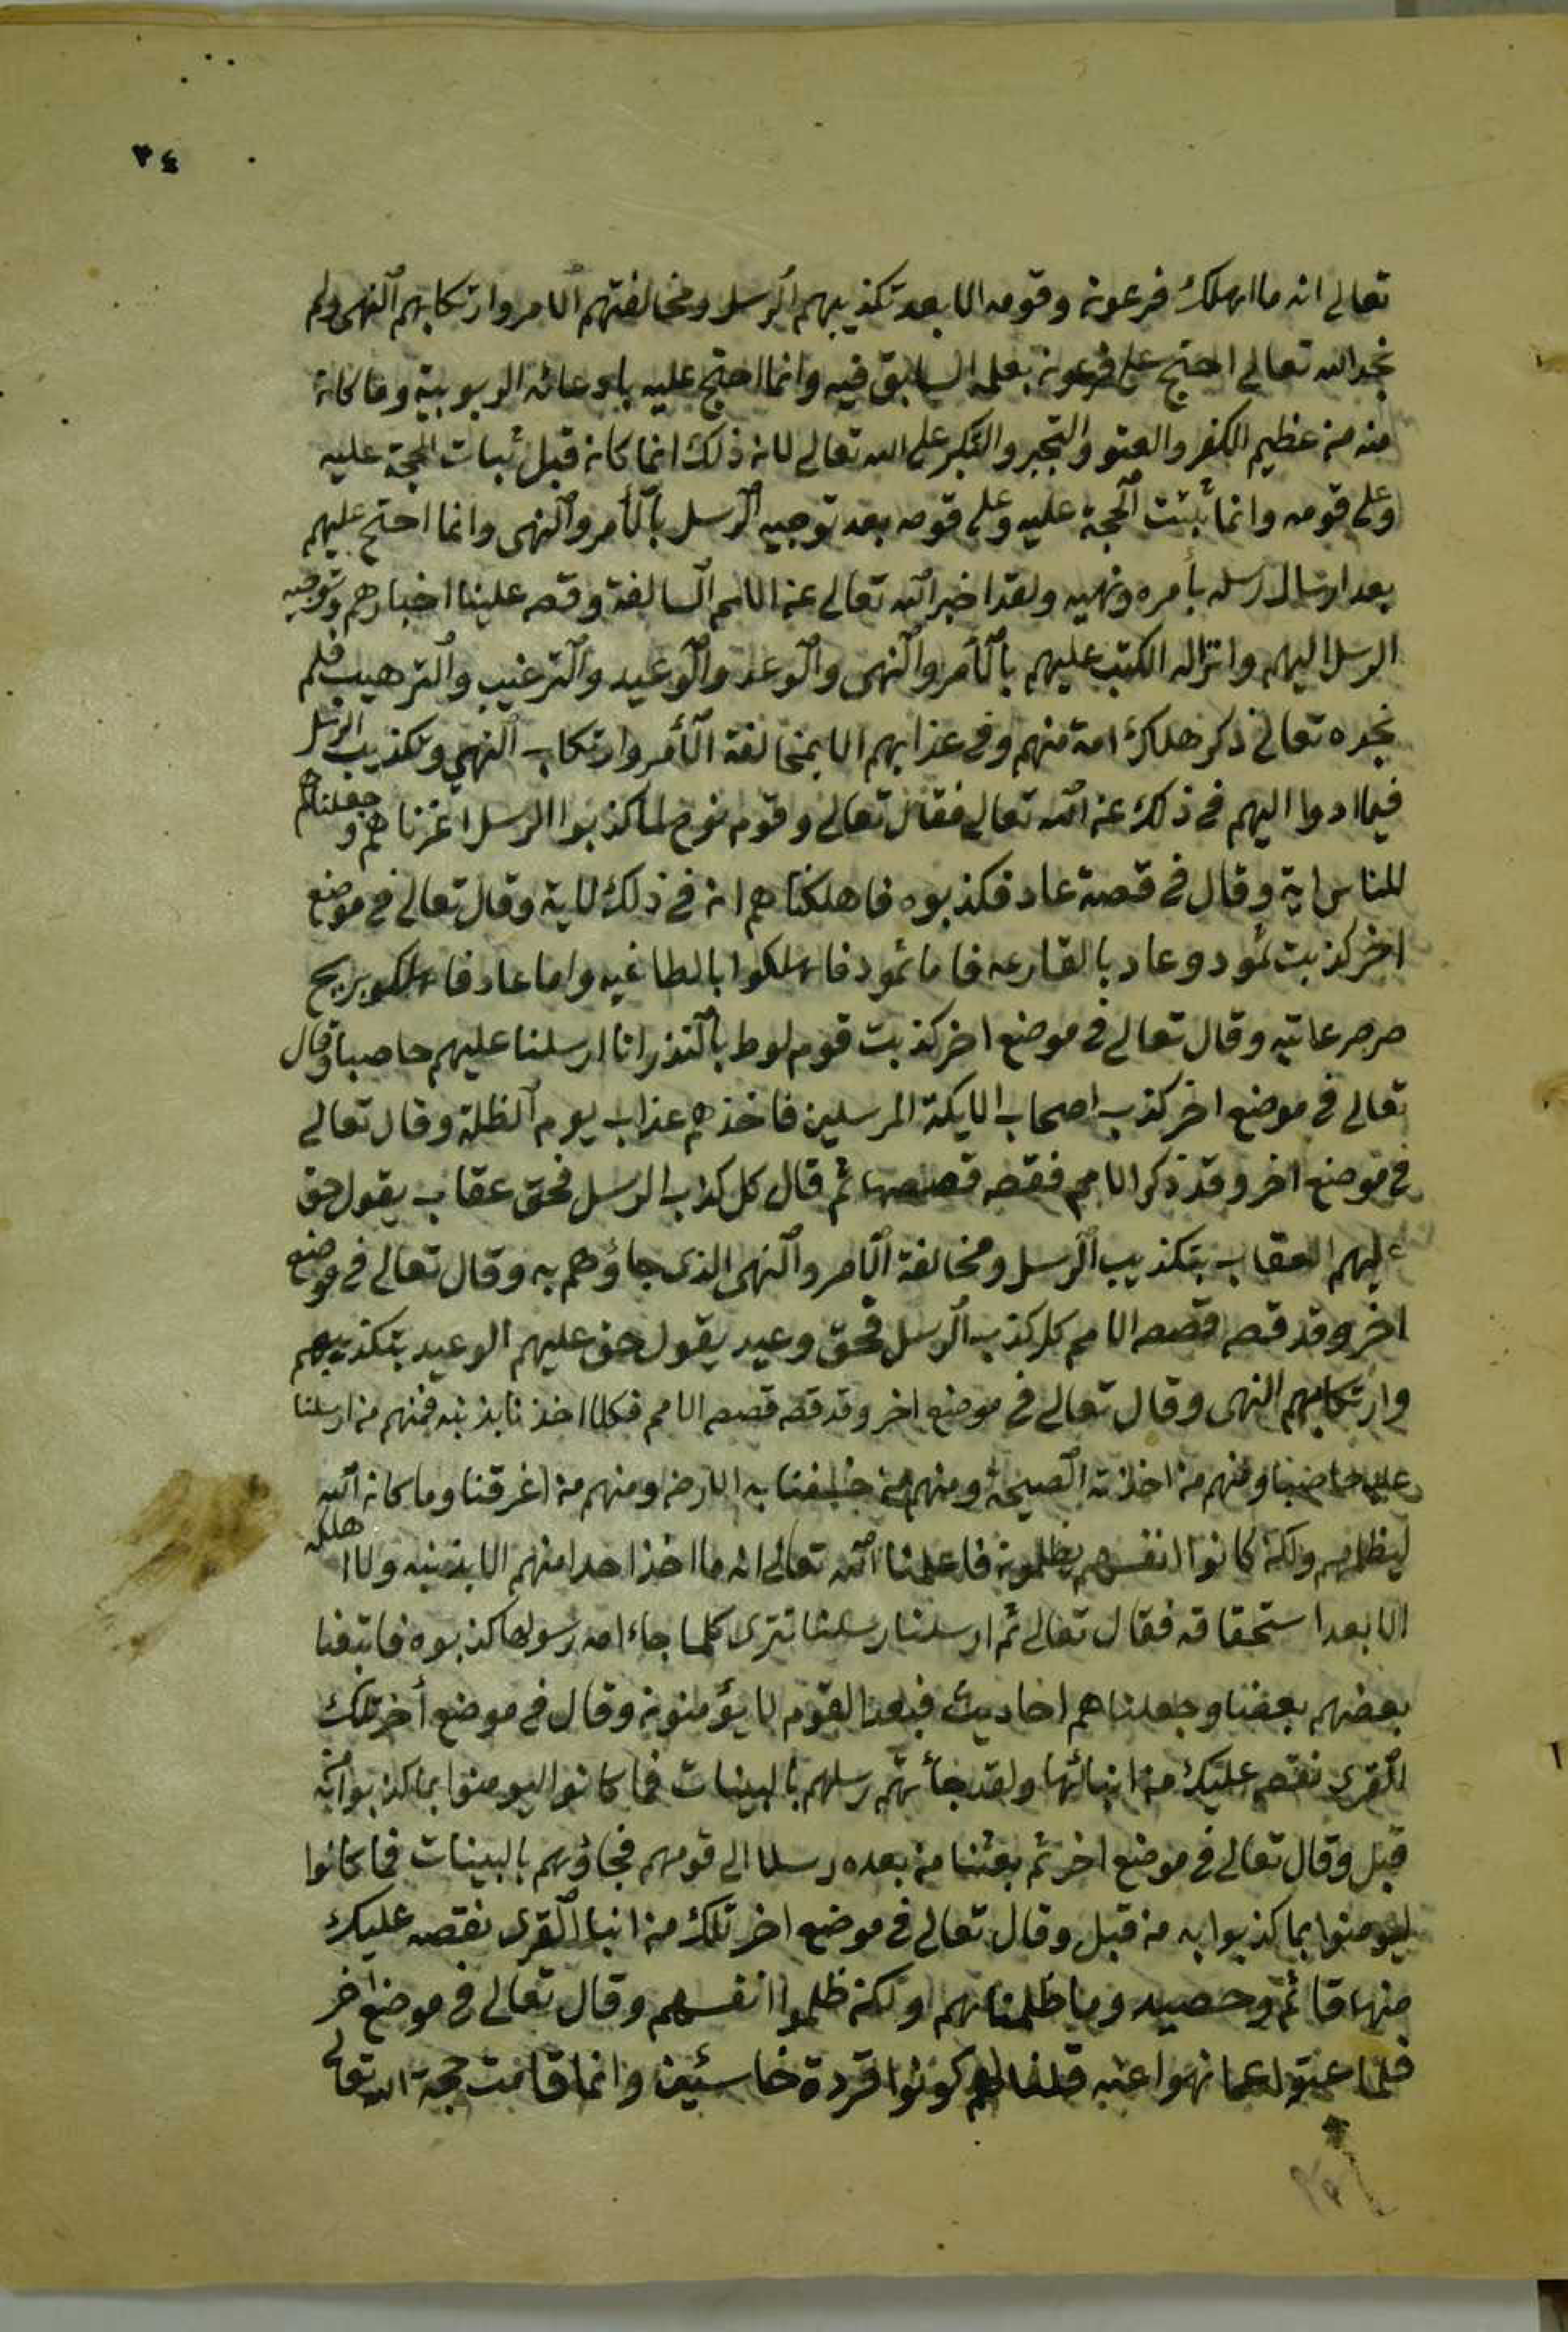 ٣٤
تعالى انه ما اهلك فرعون وقومه الا بعد تكذيبهم الرسل ومخالفتهم الامر وارتكابهم النهى ولم
نجد الله تعالى احتج على فرعون بعلمه السابق فيه وانما احتج عليه بادعائه الربوبية وما كان
منه من عظيم الكفر والعتو والتجبر والتكبر على الله تعالى لان ذلك انما كان قبل ثبات الحجة عليه
وعلى قومه وانما ثبتت الحجة عليه وعلى قومه بعد توجيه الرسل بالأمر والنهى وانما احتج عليهم
بعد ارسال رسله بأمره ونهيه ولقد اخبر الله تعالى عن الامم السالفة وقص علينا اخبارهم وتوجيه
الرسل اليهم وانزاله الكتب عليهم بالأمر والنهى والوعد والوعيد والترغيب والترهيب فلم
نجده تعالى ذكر هلاك امة منهم وفى عذابهم الا بمخالفة الأمر وارتكاب النهي وتكذيب الرسل
فيما ادوا اليهم فى ذلك عن الله تعالى فقال تعالى وقوم نوح لما كذبوا الرسل اغرقناهم وجعلناهم
للناس اية وقال فى قصة عاد فكذبوه فاهلكناهم ان فى ذلك لاية وقال تعالى فى موضع
اخر كذبت ثمود وعاد بالقارعه فاما ثمود فاهلكوا بالطاغيه واما عاد فاهلكو بريح
صرصر عاتيه وقال تعالى فى موضع اخر كذبت قوم لوط بالنذر انا ارسلنا عليهم حاصبا وقال
تعالى فى موضع اخر كذب اصحاب الايكة المرسلين فاخذهم عذاب يوم الظلة وقال تعالى
فى موضع اخر وقد ذكر الامم فقص قصصها ثم قال كل كذب الرسل فحق عقاب يقول حق
عليهم العقاب بتكذيب الرسل ومخالفة الامر والنهى الذى جاؤهم به وقال تعالى فى موضع
اخر وقد قص قصص الامم كل كذب الرسل فحق وعيد يقول حق عليهم الوعيد بتكذيبهم
وارتكابهم النهى وقال تعالى فى موضع اخر وقد قص قصص الامم فكلا اخذنا بذنبه فمنهم من ارسلنا
عليه حاصبا ومنهم من اخذته الصيحة ومنهم من خسفنا به الارض ومنهم من اغرقنا وما كان الله
ليظلمهم ولكن كانوا انفسهم يظلمون فاعلمنا الله تعالى انه ما اخذ احدا منهم الا بذنبه ولا اهلكه
الا بعد استحقاقه فقال تعالى ثم ارسلنا رسلنا تترى كلما جاء امة رسولها كذبوه فاتبعنا
بعضهم بعضا وجعلناهم احاديث فبعدا لقوم لا يؤمنون وقال فى موضع أخر تلك
القرى نقص عليك من انبائها ولقد جأتهم رسلهم بالبينات فما كانوا ليومنوا بما كذبوا من
قبل وقال تعالى فى موضع اخر ثم بعثنا من بعده رسلا الى قومهم فجاؤهم بالبينات فما كانوا
ليومنوا بما كذبوا به من قبل وقال تعالى فى موضع اخر تلك من انبا القرى نقصه عليك
منها قائم وحصيد وما ظلمناهم ولكن ظلموا انفسهم وقال تعالى فى موضع اخر
فلما عتوا عما نهوا عنه قلنا لهم كونوا قردة خاسئين وانما قامت حجة الله تعالى